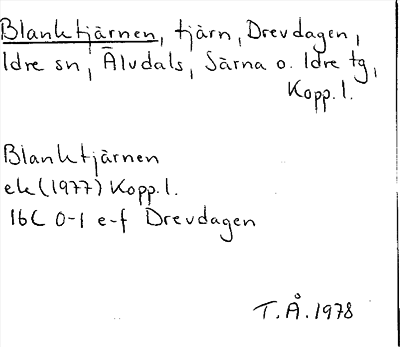 Blanktjärnen, tjärn, Drevdagen,
Idre sn, Älvdals, Särna o. Idre tg,
Kopp. l.
Blanktjärnen
ek (1977) Kopp. l.
16C 0-1 e-f Drevdagen
T. Å. 1978